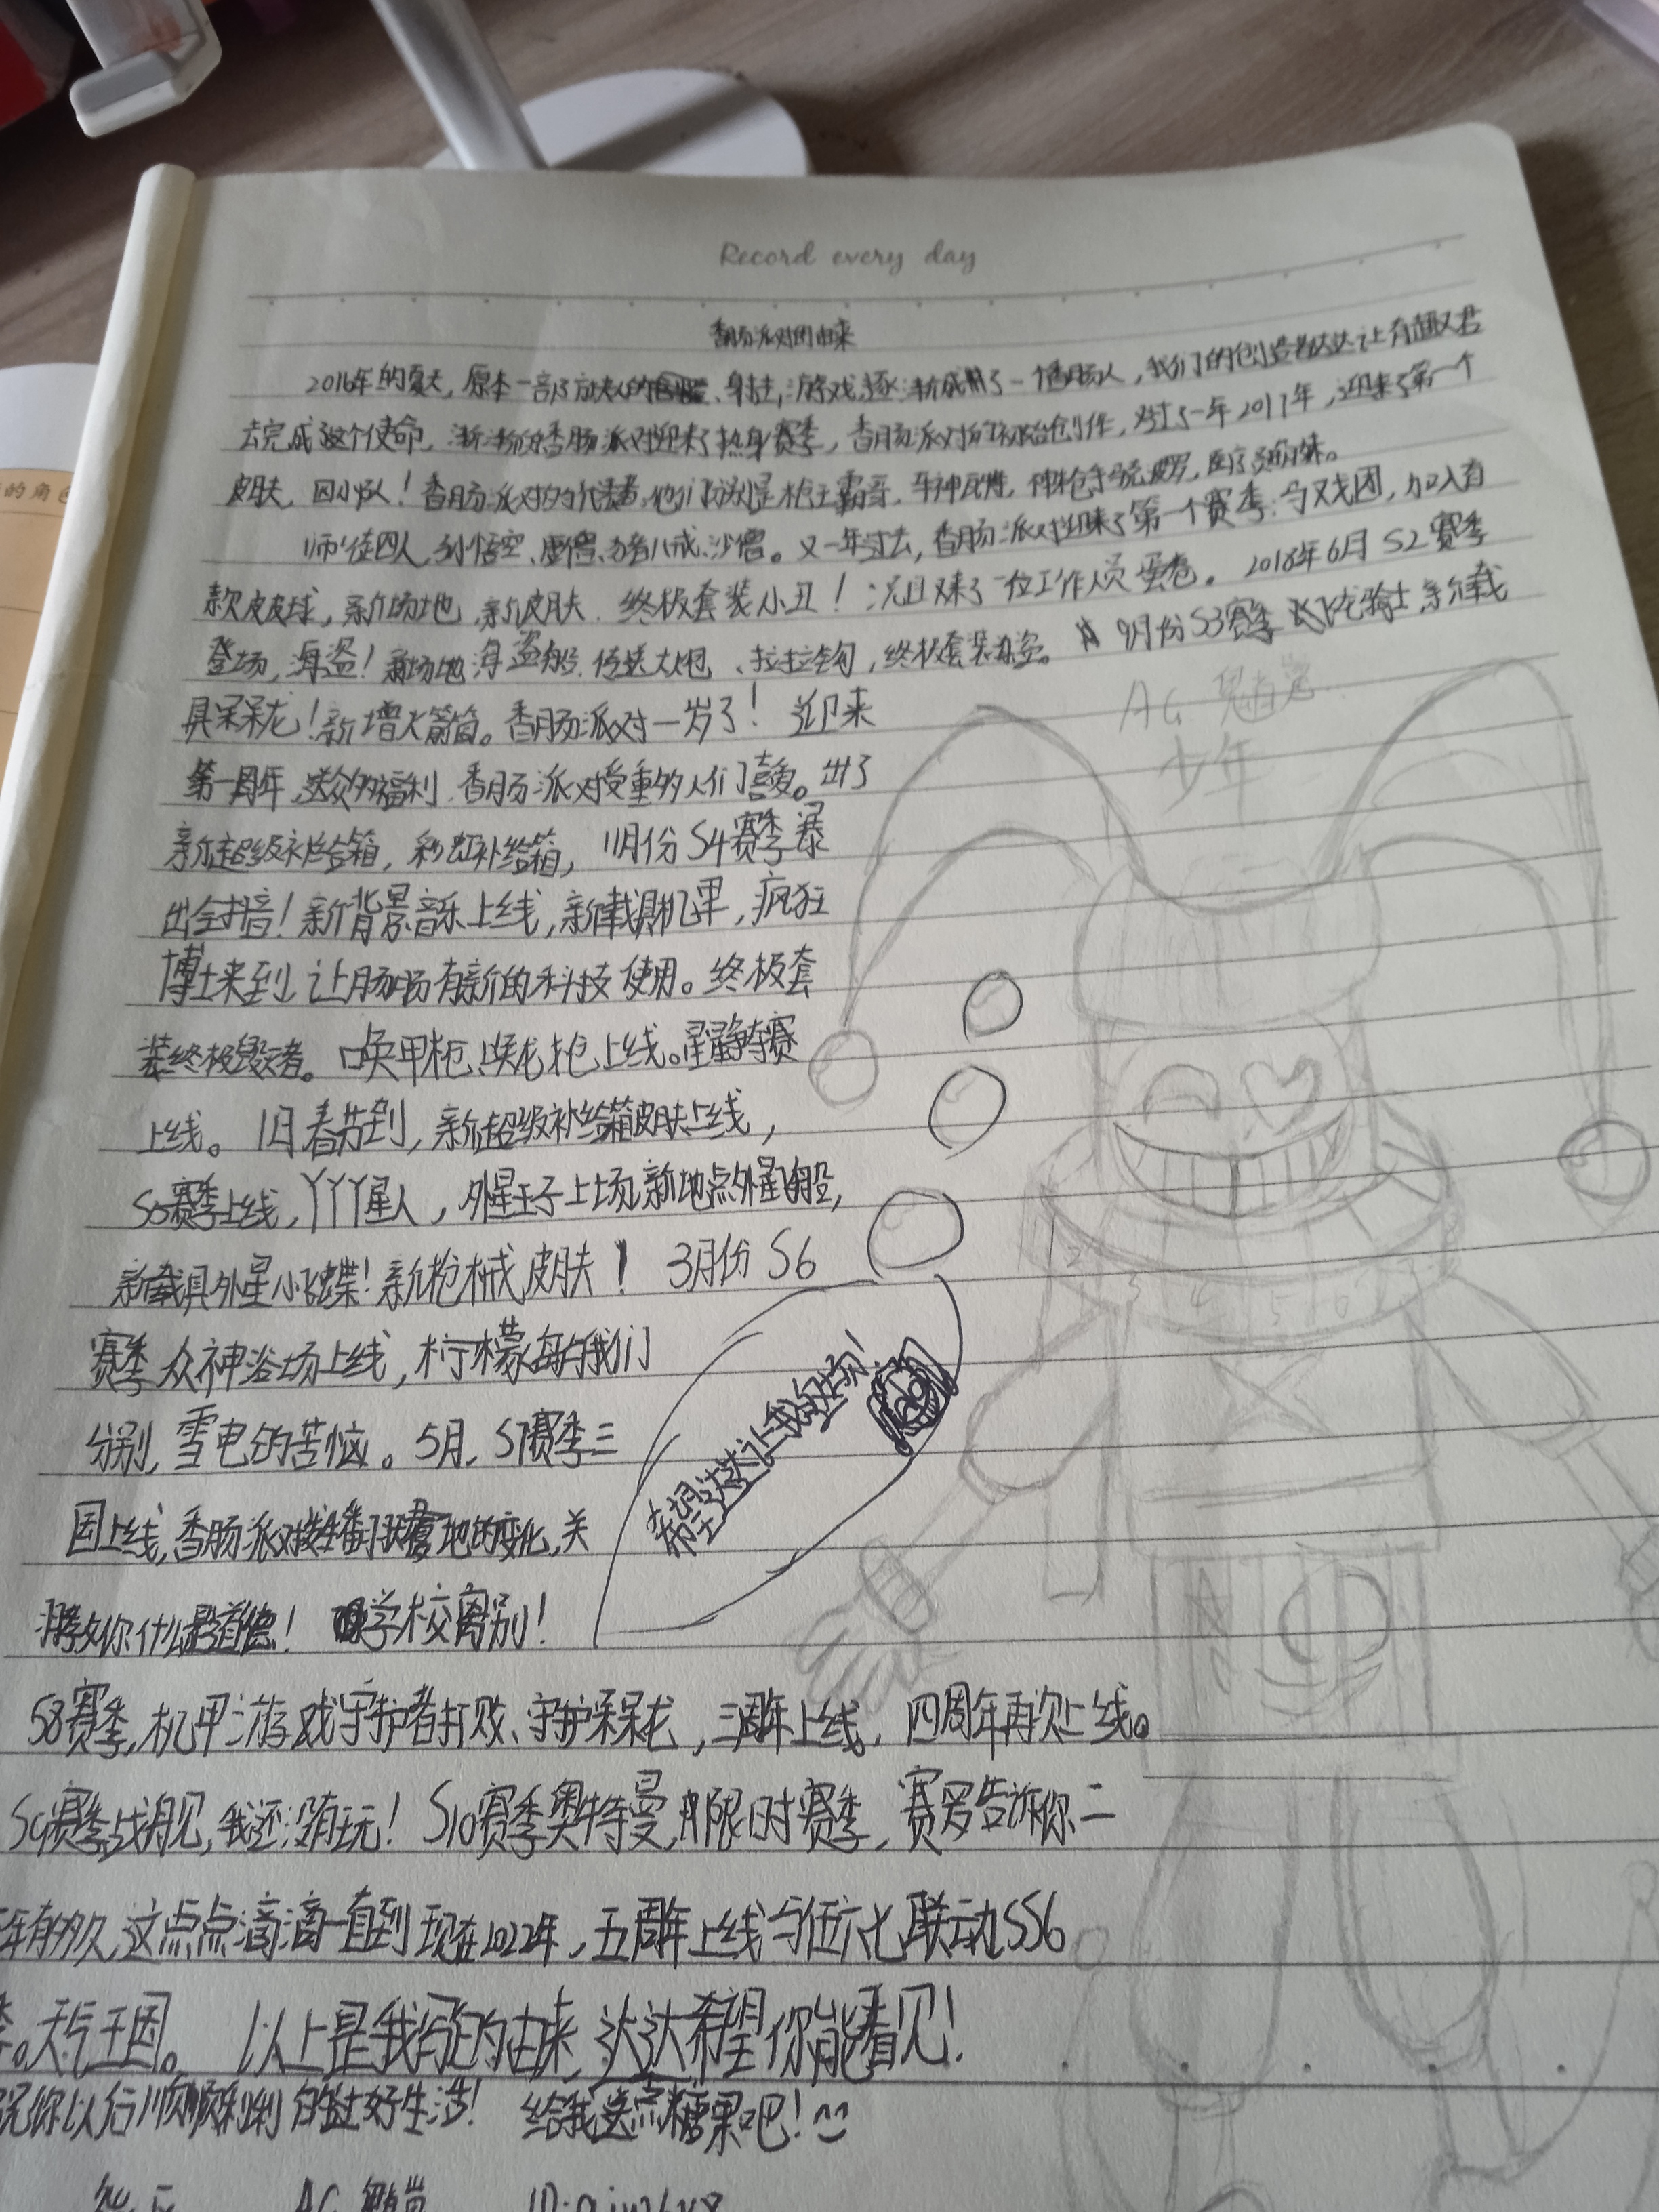 Record every day
香肠派对的由来
2016年的夏天,原本一部的射击游戏逐渐成了一个香肠人,我们的创造者达达让有趣又君
去完成这个使命,渐渐的香肠派对迎来了热身赛季,香肠派对的初始创作,过了一年2017年,迎来了第一个
皮肤,四小队!香肠派对的代表者,他们分别是枪王霸哥,车神瓦特,神枪手马克波罗,医疗
师徒四人,孙悟空、唐僧、猪八戒、沙僧。又一年过去,香肠派对迎来了第一个赛季:马戏团,加入有
款皮皮球,新场地,新皮肤,终极套装小丑!况且又来了一位工作人员蛋卷。2018年6月S2赛季
登场,海盗!新场地海盗船,传送大炮、拉拉钩,终极套装海盗。9月份S3赛季飞龙骑士,新载
具呆呆龙!新增火箭筒。香肠派对一岁了!迎来
第一周年,送众多福利,香肠派对受重多人们喜爱。出了
新超级补给箱,彩虹补给箱,11月份S4赛季暴
出全抖音!新背景音乐上线,新载具机甲,疯狂
博士来到让肠肠有新的科技使用。终极套
装终极毁灭者。唤甲枪、唤龙枪上线。星赛
上线。1月春节到,新超级补给箱皮肤上线,
S5赛季上线,丫丫丫星人,外星王子上场,新地点外星飞船,
新载具外星小飞蝶!新枪械皮肤!3月份S6
赛季众神浴场上线,柠檬每的我们
分别,雪电的苦恼。5月,S7赛季三
国上线,香肠派对发生翻天覆地的变化,关
教你什么是道德!学校离别!
S8赛季,机甲游戏守护者打败、守护呆呆龙,三周年上线,四周年再次上线。
S9赛季战舰,我还没有玩!S10赛季奥特曼,限时赛季,赛罗告诉你二
年有多久,这点点滴滴一直到现在2022年,五周年上线与伍六七联动SS6
季。天气王国。以上是我写的由来,达达希望你能看见!
祝你以后顺顺利利的过好生活!给我送点糖果吧!
AG 魁首
少年
希望达达让我的出场!
1 2 3 4 5 6
AG